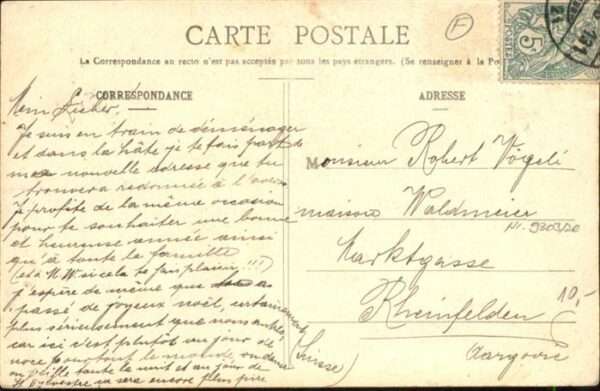 CARTE POSTALE
F
La Correspondance au recto n'est pas acceptée par tous les pays étrangers. (Se renseigner à la Po
CORRESPONDANCE
ADRESSE
5
Mein Lieber,
Je suis en train de déménager
et dans la hâte je te fais part de
ma nouvelle adresse que tu
trouvera redonnée à l'
Je profite de la même occasion
pour te souhaiter une bonne
et heureuse année ainsi
qu'à toute ta famille
(et à H.W si cela te fais plaisir !!!)
j'espère de même que as
passé de joyeux noël, certainement
plus sérieusement que nous autres,
car ici c'est plutôt un jour de
noce pour tout le monde, on danse
on toute la nuit et au jour de
St Sylvestre ça sera encore plus pire
Monsieur Robert Vögeli
maison Waldmeier
Nr. 9803/20
Marktgasse
Rheinfelden
10,-
(Suisse)
Aargovie